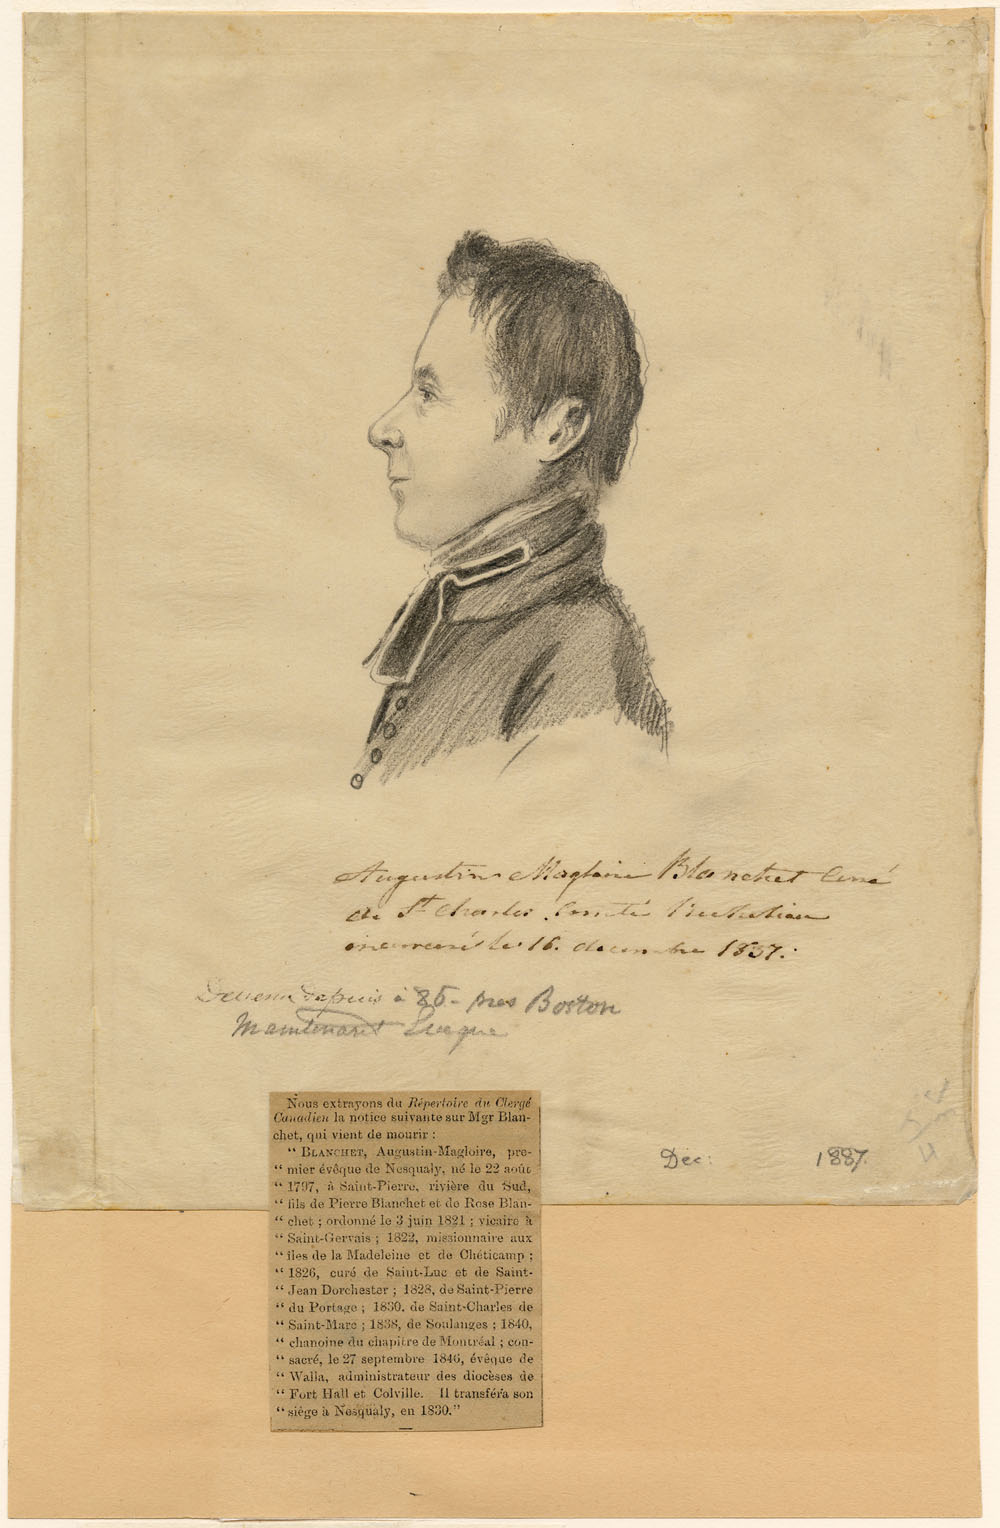 Augustin Magloire Blanchet Curé
de St Charles. Comté Richelieu
incarceré le 16. decembre 1837.
Devenu depuis à 85 - pres Boston
Maintenant Eveque
Nous extrayons du Répertoire du Clergé
Canadien la notice suivante sur Mgr Blan-
chet, qui vient de mourir :
" BLANCHET, Augustin-Magloire, pre-
" mier évêque de Nesqualy, né le 22 août
" 1797, à Saint-Pierre, rivière du Sud,
" fils de Pierre Blanchet et de Rose Blan-
" chet ; ordonné le 3 juin 1821 ; vicaire à
" Saint-Gervais ; 1822, missionnaire aux
" îles de la Madeleine et de Chéticamp ;
" 1826, curé de Saint-Luc et de Saint-
" Jean Dorchester ; 1828, de Saint-Pierre
" du Portage ; 1830, de Saint-Charles de
" Saint-Marc ; 1838, de Soulanges ; 1840,
" chanoine du chapitre de Montréal ; con-
" sacré, le 27 septembre 1846, évêque de
" Walla, administrateur des diocèses de
" Fort Hall et Colville. Il transféra son
" siège à Nesqualy, en 1830."
Dec: 1887.